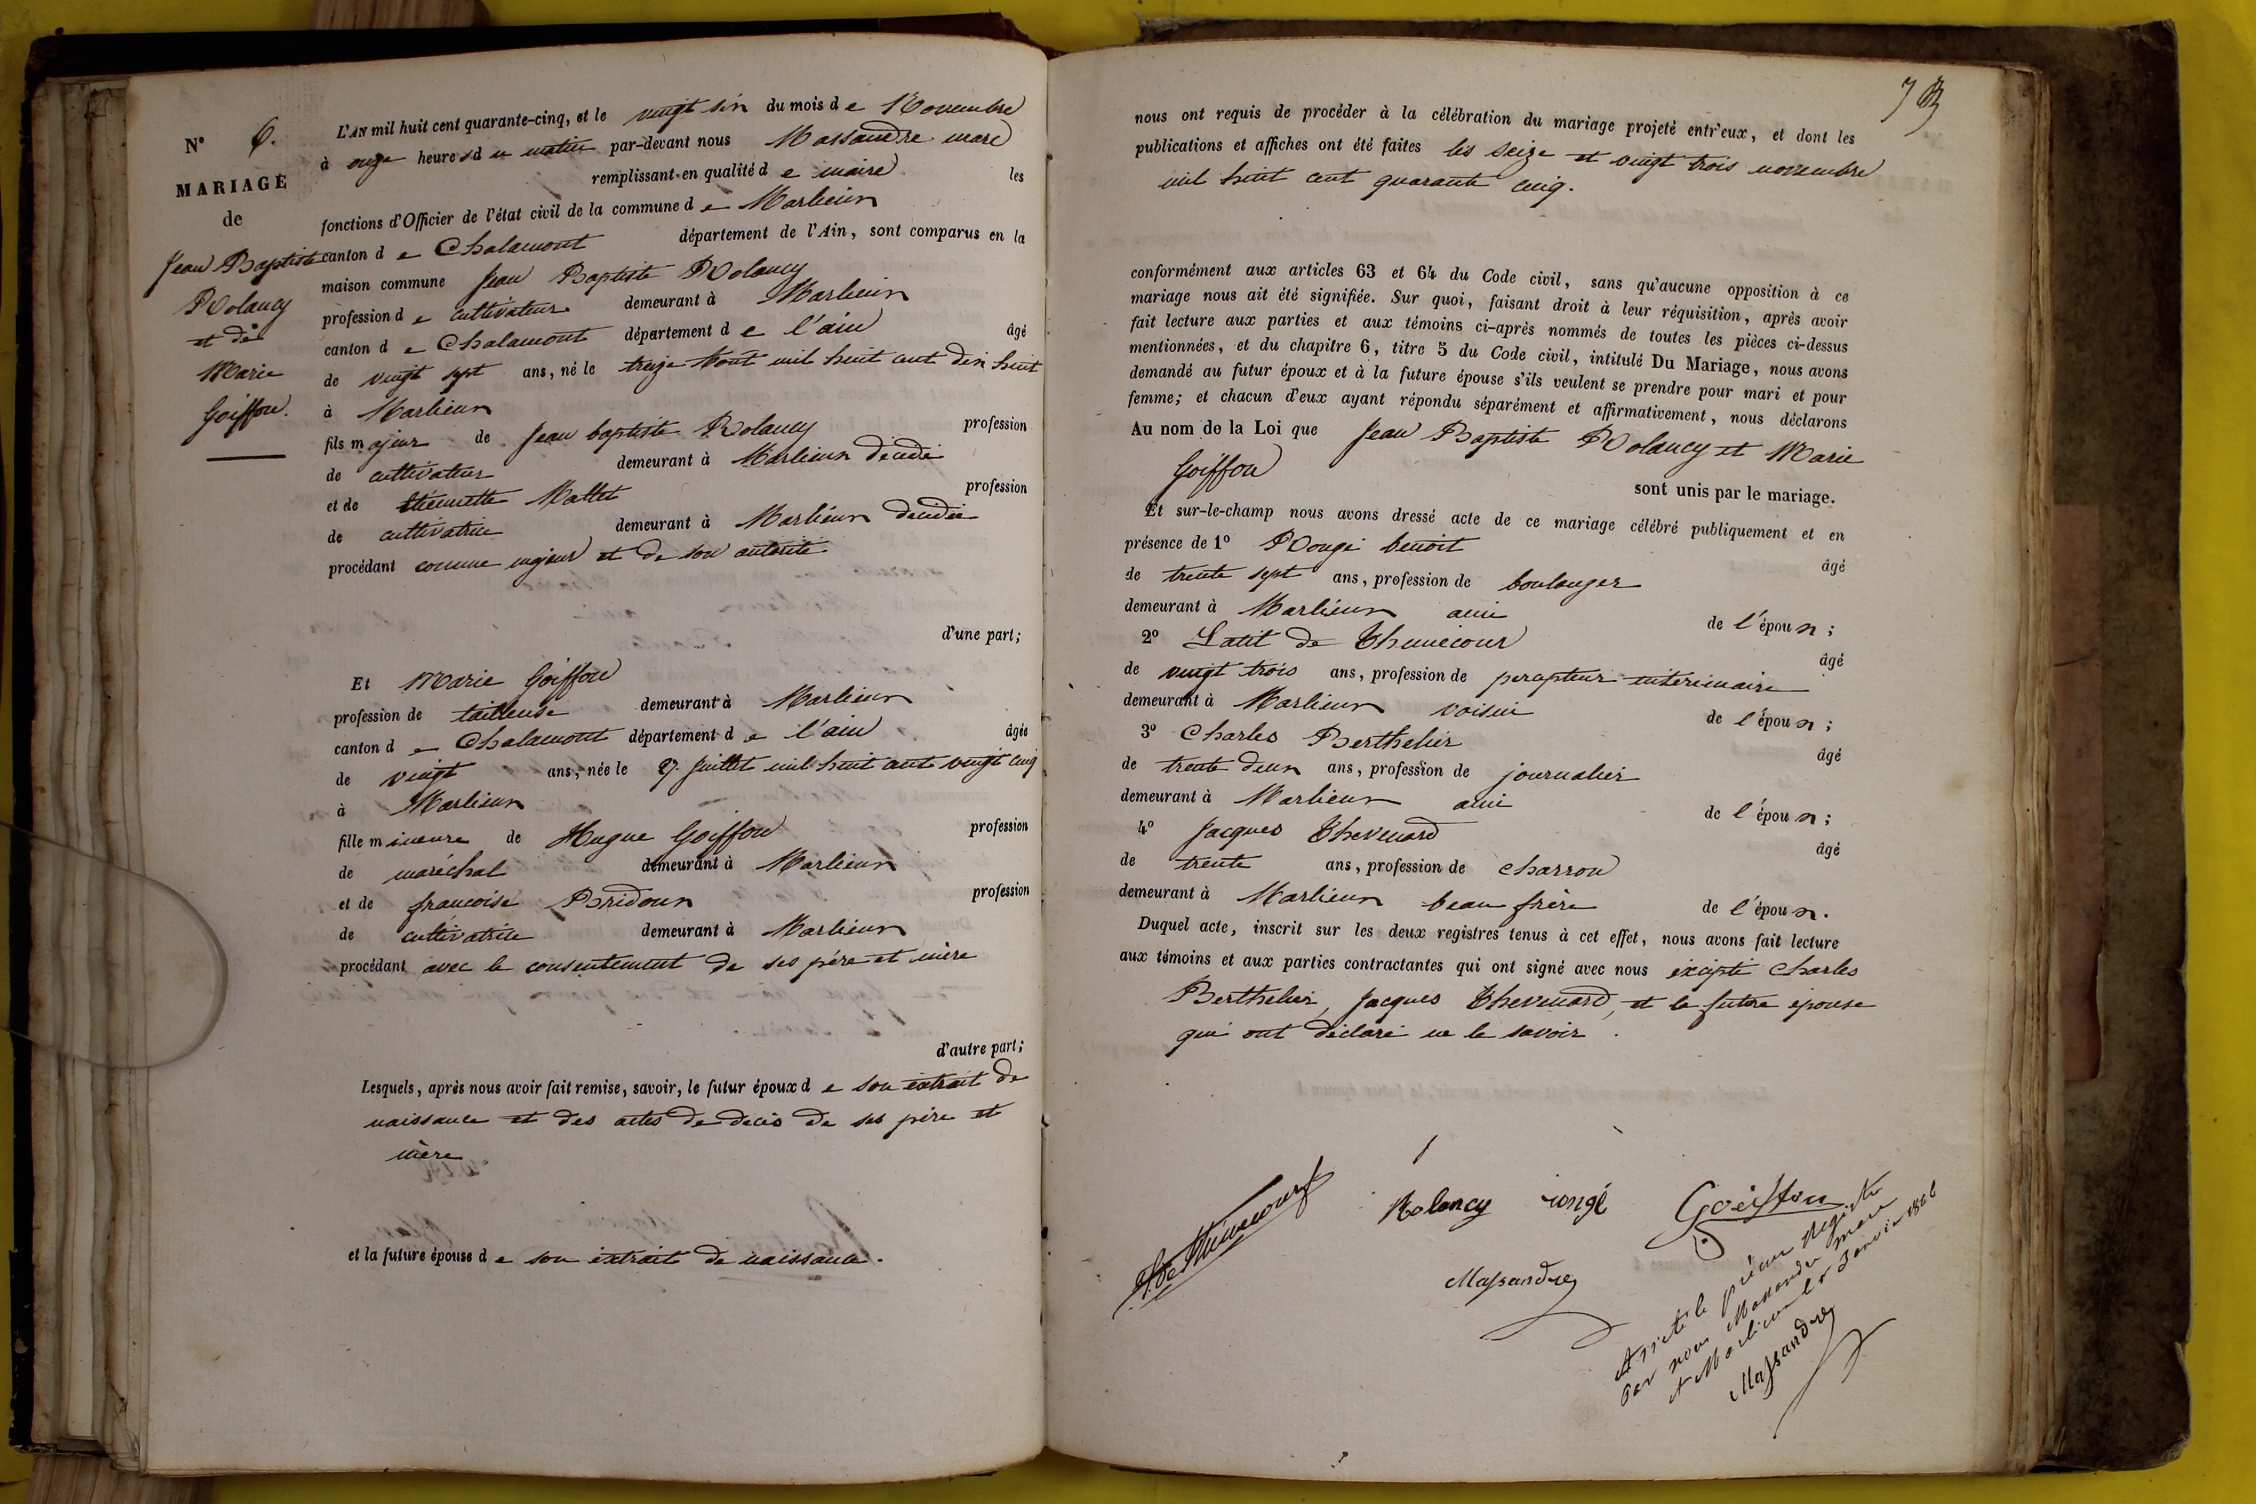 N° 6.
MARIAGE
de
Jean Baptiste
Rolancy
et de
Marie
Goiffon.
L'AN mil huit cent quarante-cinq, et le vingt six du mois de Novembre
à onze heures du matin par-devant nous Massandre mare
remplissant en qualité de maire les
fonctions d'Officier de l'état civil de la commune de Marlieux
canton de Chalamont département de l'Ain, sont comparus en la
maison commune Jean Baptiste Rolancy
profession de cultivateur demeurant à Marlieux
canton de Chalamont département de l'ain âgé
de vingt sept ans, né le treize Aout mil huit cent dix huit
à Marlieux
fils majeur de Jean baptiste Rolancy profession
de cultivateur demeurant à Marlieux décédé
et de Etiennette Mallet profession
de cultivatrice demeurant à Marlieux décédée
procédant comme majeur et de son autorité.
d'une part;
Et Marie Goiffon
profession de tailleuse demeurant à Marlieux
canton de Chalamont département de l'ain âgée
de vingt ans, née le 27 Juillet mil huit cent vingt cinq
à Marlieux
fille mineure de Hugue Goiffon profession
de maréchal demeurant à Marlieux
et de francoise Bridoux profession
de cultivatrice demeurant à Marlieux
procédant avec le consentement de ses père et mère
d'autre part;
Lesquels, après nous avoir fait remise, savoir, le futur époux de son extrait de
naissance et des actes de decès de ses père et
mère
et la future épouse de son extrait de naissance.
73
nous ont requis de procéder à la célébration du mariage projeté entr'eux, et dont les
publications et affiches ont été faites les seize et vingt trois novembre
mil huit cent quarante cinq.
conformément aux articles 63 et 64 du Code civil, sans qu'aucune opposition à ce
mariage nous ait été signifiée. Sur quoi, faisant droit à leur réquisition, après avoir
fait lecture aux parties et aux témoins ci-après nommés de toutes les pièces ci-dessus
mentionnées, et du chapitre 6, titre 5 du Code civil, intitulé Du Mariage, nous avons
demandé au futur époux et à la future épouse s'ils veulent se prendre pour mari et pour
femme; et chacun d'eux ayant répondu séparément et affirmativement, nous déclarons
Au nom de la Loi que Jean Baptiste Rolancy et Marie
Goiffon
sont unis par le mariage.
Et sur-le-champ nous avons dressé acte de ce mariage célébré publiquement et en
présence de 1° Rongé benoit âgé
de trente sept ans, profession de boulanger
demeurant à Marlieux ami de l'époux;
2° de Thunecour âgé
de vingt trois ans, profession de percepteur intérimaire
demeurant à Marlieux voisin de l'époux;
3° Charles Berthelier âgé
de trente deux ans, profession de journalier
demeurant à Marlieux ami de l'époux;
4° Jacques Thevenard âgé
de trente ans, profession de charron
demeurant à Marlieux beau frère de l'époux.
Duquel acte, inscrit sur les deux registres tenus à cet effet, nous avons fait lecture
aux témoins et aux parties contractantes qui ont signé avec nous excepté Charles
Berthelier, Jacques Thevenard, et la future épouse
qui ont déclaré ne le savoir.
Rolancy rongé Goiffon
Massandre
Arrêté le présent Registre
par nous Massandre mare
à Marlieux le 1er Janvier 1846
Massandre